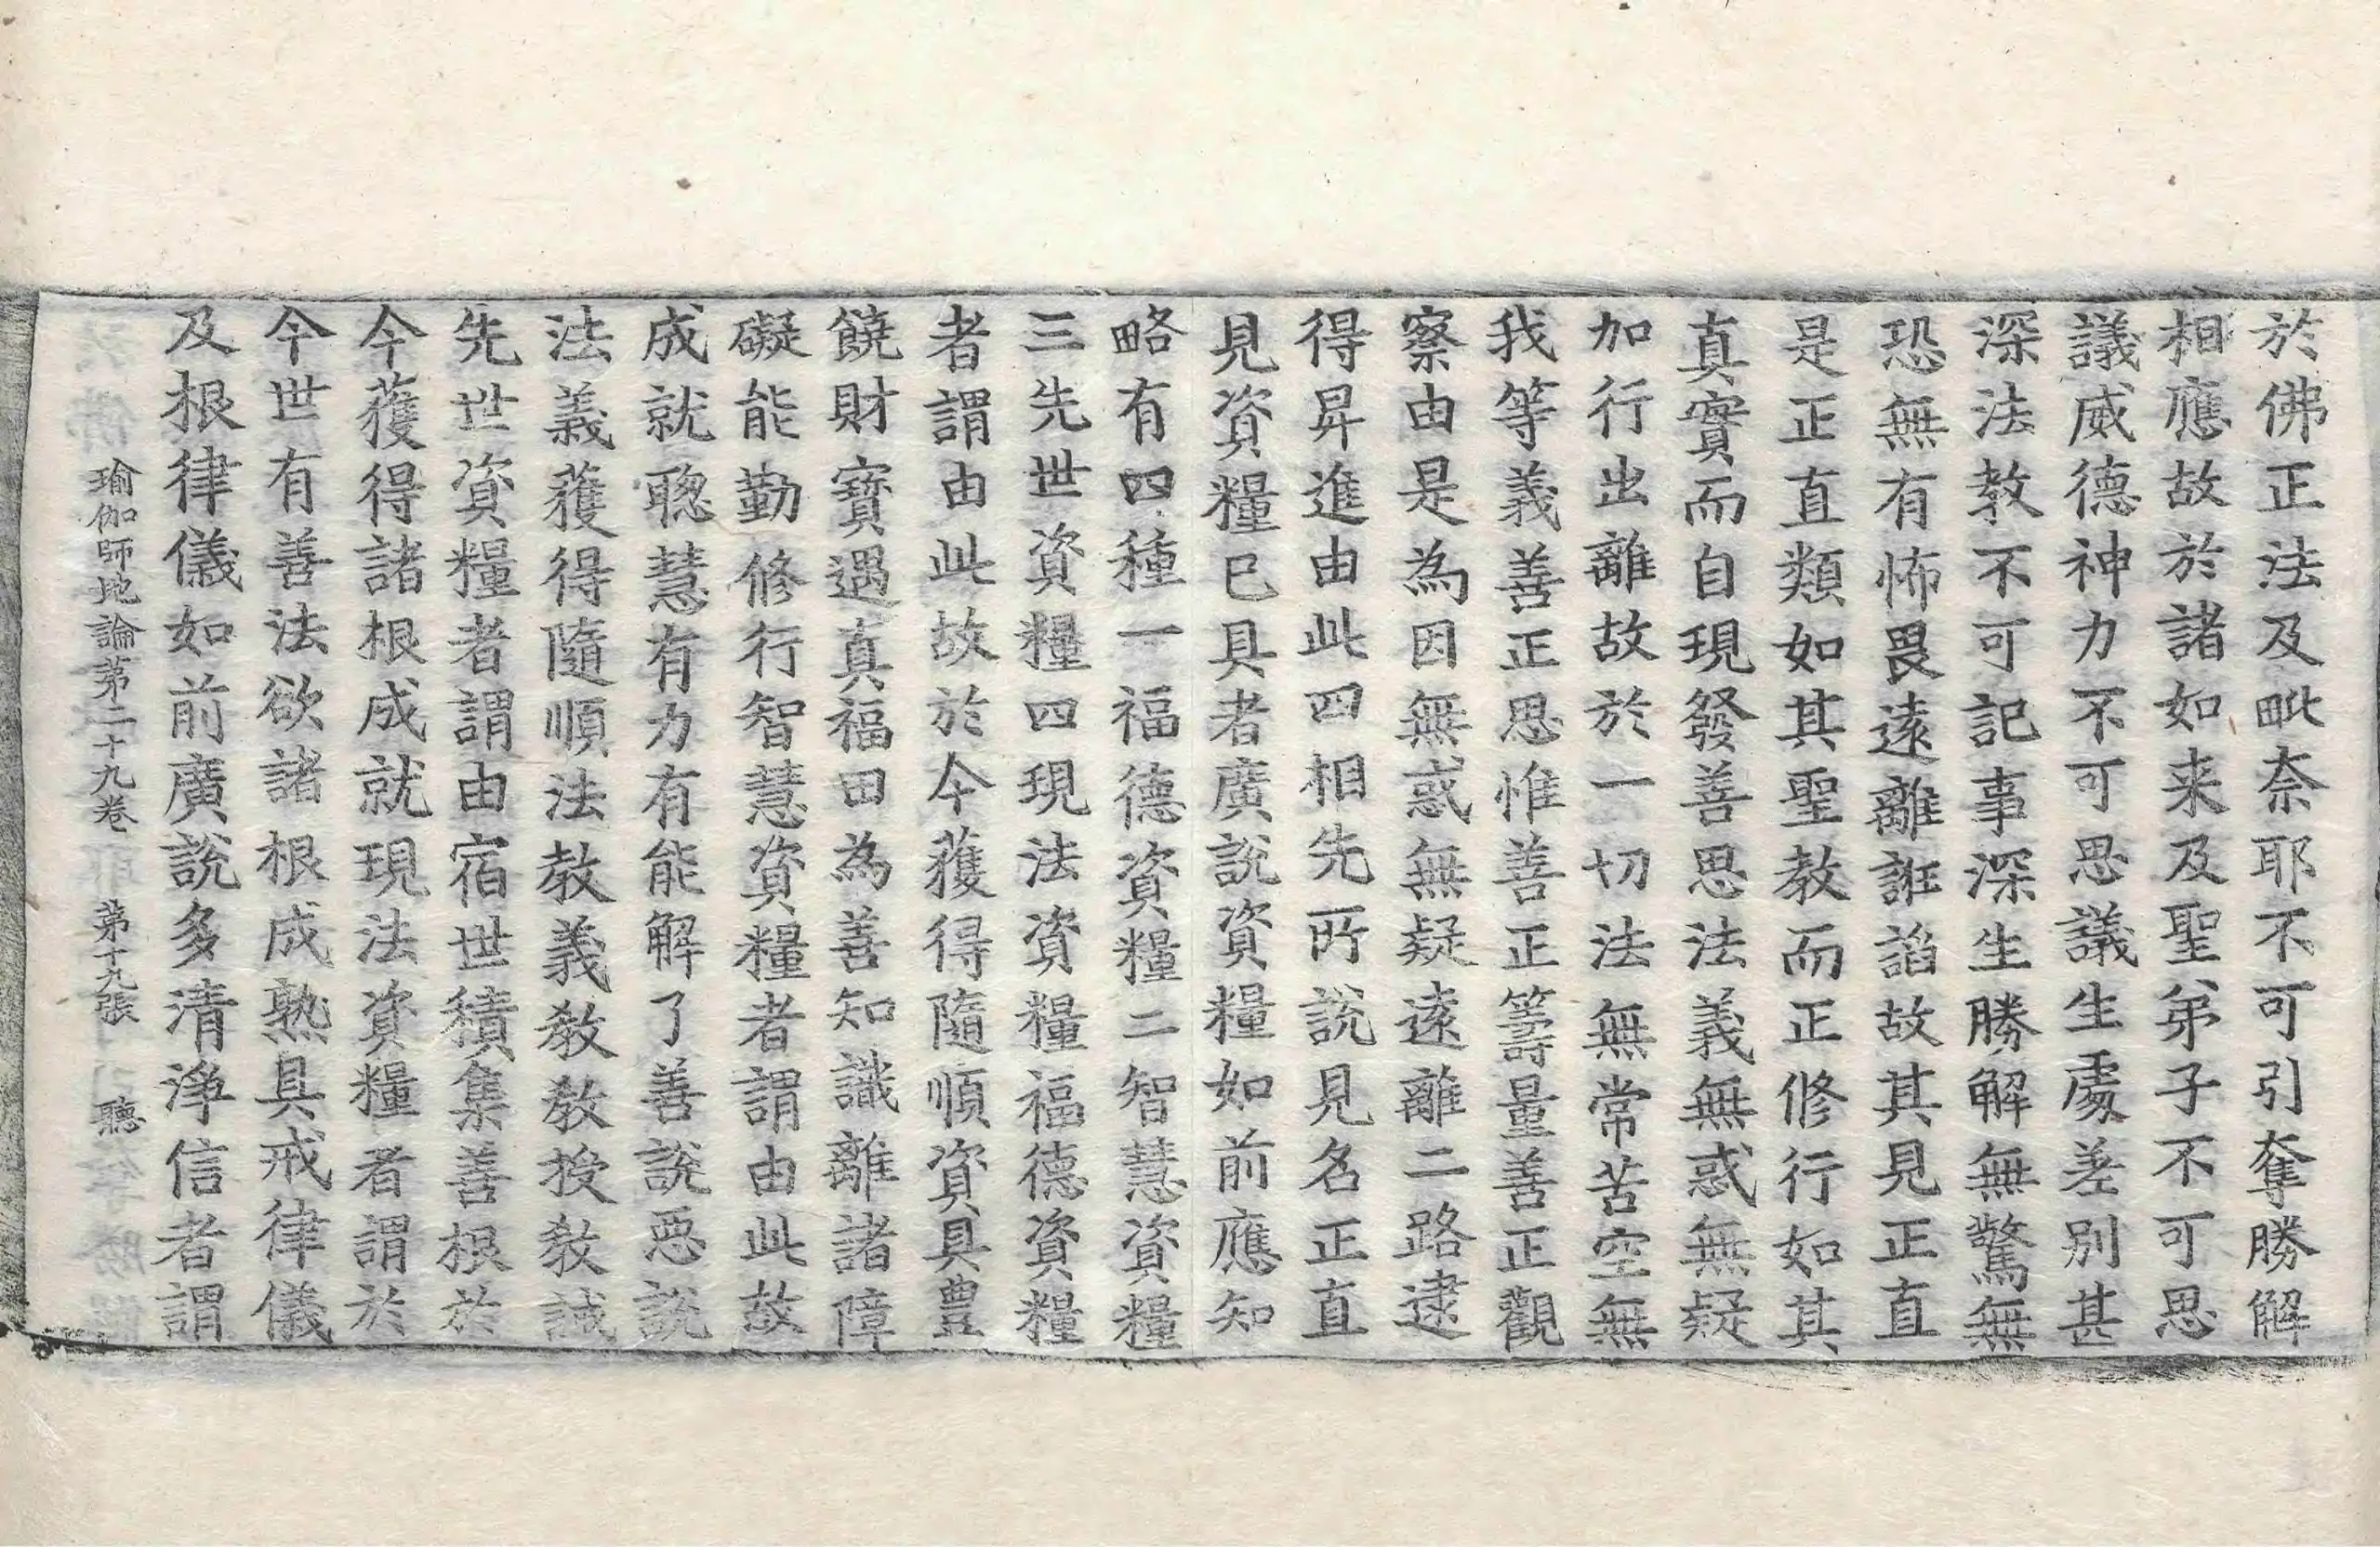 於佛正法及毗奈耶不可引奪勝解
相應故於諸如来及聖弟子不可思
議威德神力不可思議生處差別甚
深法教不可記事深生勝解無驚無
恐無有怖畏遠離誑諂故其見正直
是正直類如其聖教而正修行如其
真實而自現發善思法義無惑無疑
加行出離故於一切法無常苦空無
我等義善正思惟善正籌量善正觀
察由是為因無惑無疑遠離二路逮
得昇進由此四相先所說見名正直
見資糧已具者廣說資糧如前應知
略有四種一福德資糧二智慧資糧
三先世資糧四現法資糧福德資糧
者謂由此故於今獲得隨順資具豊
饒財寶遇真福田為善知識離諸障
礙能勤修行智慧資糧者謂由此故
成就聰慧有力有能解了善說惡說
法義獲得隨順法教義教教授教誡
先世資糧者謂由宿世積集善根於
今獲得諸根成就現法資糧者謂於
今世有善法欲諸根成熟具戒律儀
及根律儀如前廣說多清淨信者謂
瑜伽師地論第二十九卷 第十九張 聽